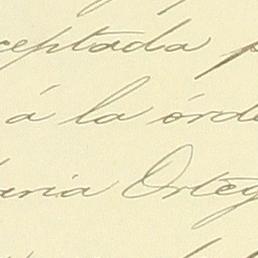 ceptada p
á la órde
aria Orteg